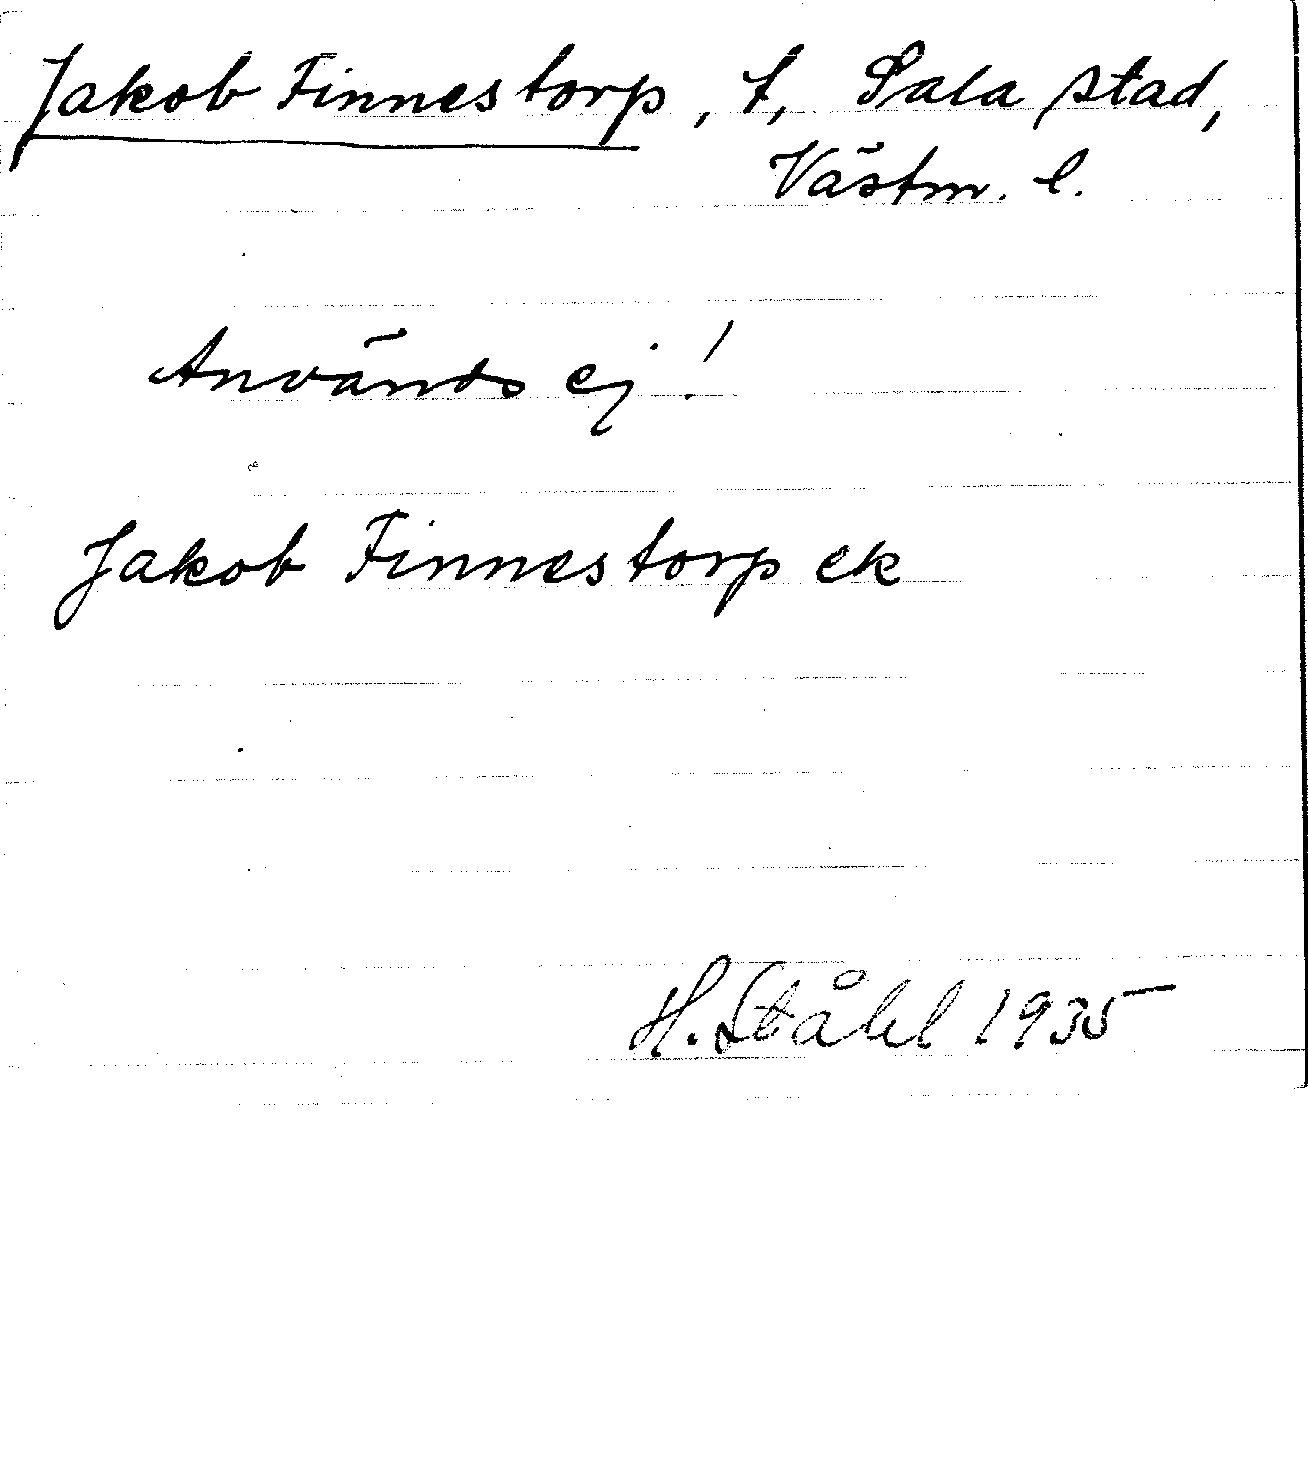 Jakob Finnestorp, t, Sala stad,
Västm. l.
Används ej!
Jakob Finnestorp ek
H. Ståhl 1935